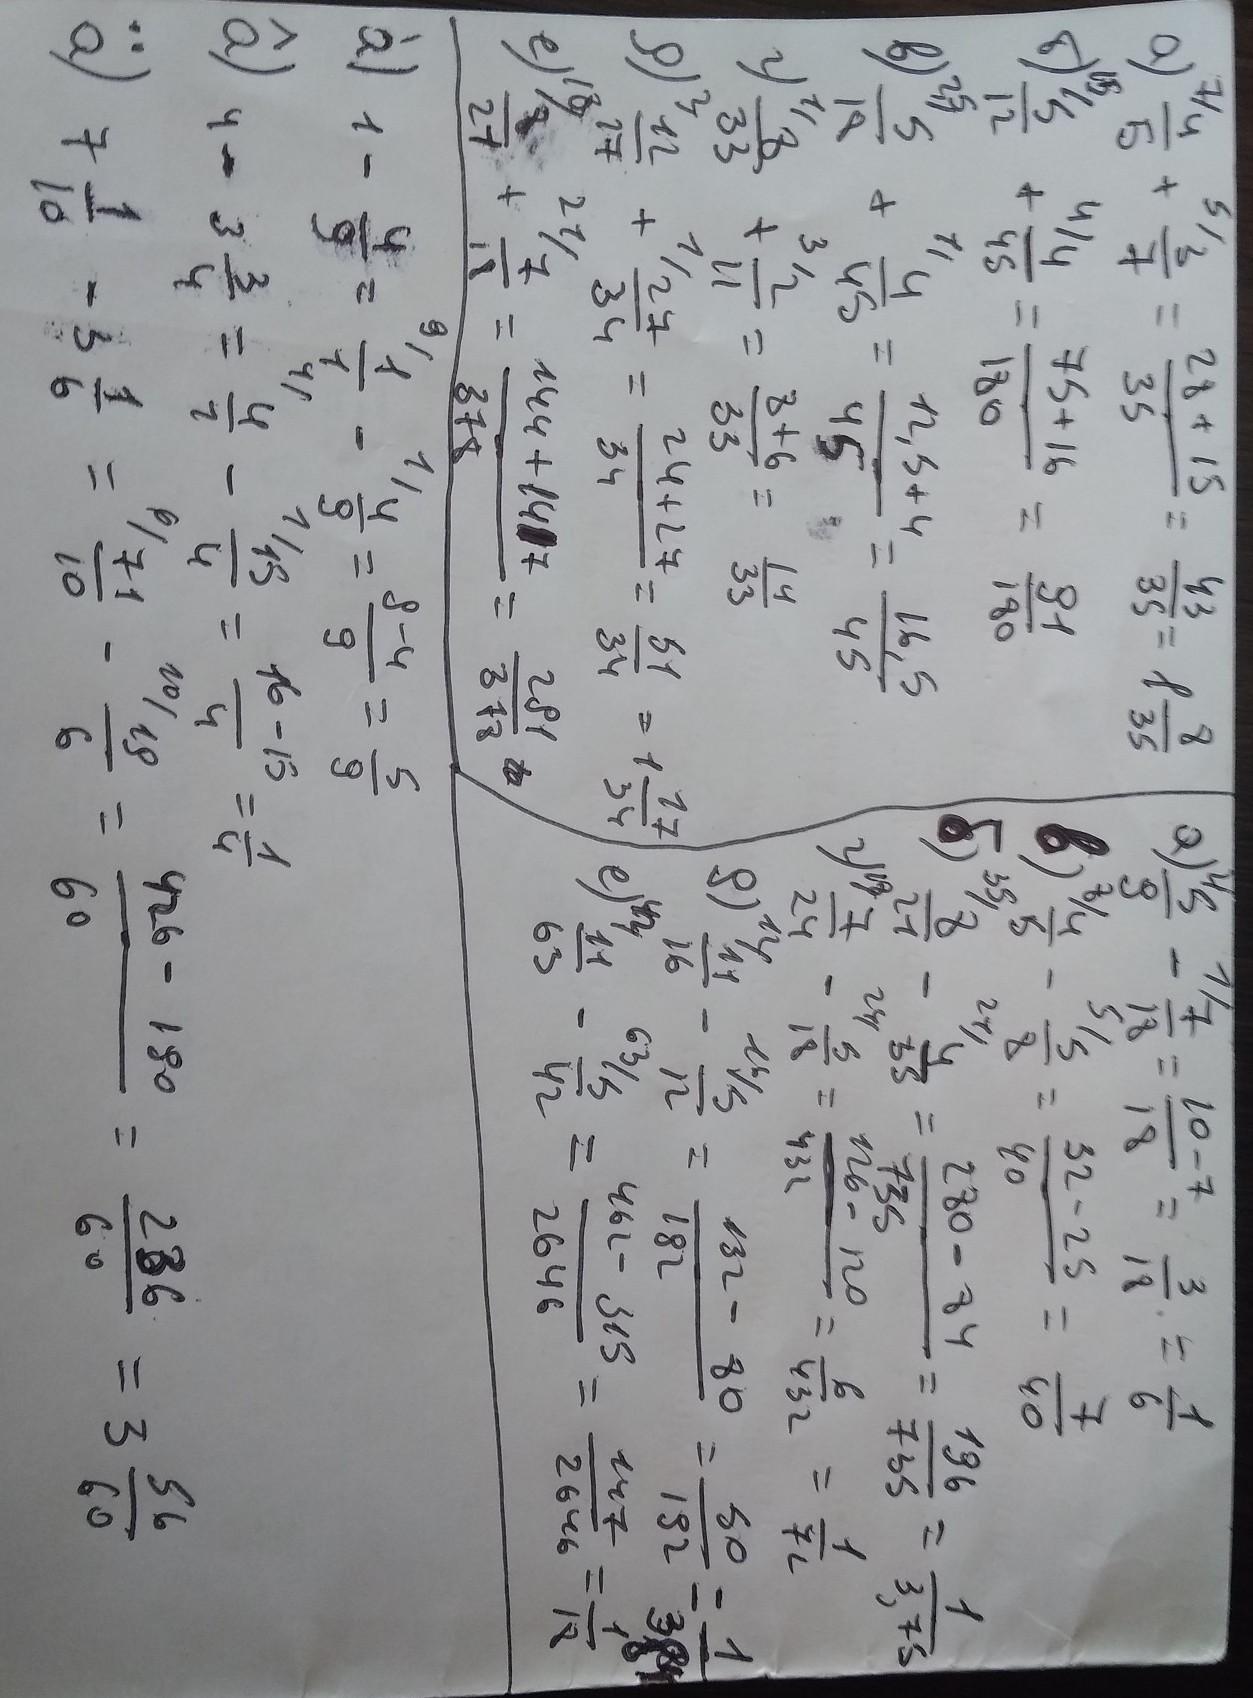 а) 7/4/5 + 5/3/7 = 28+15/35 = 43/35 = 1 8/35
б) 15/5/12 + 4/4/45 = 75+16/180 = 91/180
в) 2,5/5/18 + 1/4/45 = 12,5+4/45 = 16,5/45
г) 1/8/33 + 3/2/11 = 8+6/33 = 14/33
д) 2/12/27 + 1/27/34 = 24+27/34 = 51/34 = 1 17/34
е) 18/8/27 + 21/7/18 = 144+147/378 = 291/378
а) 2/5/9 - 1/7/18 = 10-7/18 = 3/18 = 1/6
в) 8/4/5 - 5/5/8 = 32-25/40 = 7/40
б) 35/8/21 - 21/4/35 = 280-84/735 = 196/735 = 1/3,75
г) 18/7/24 - 24/5/18 = 126-120/432 = 6/432 = 1/72
д) 12/11/16 - 16/5/12 = 132-80/192 = 50/192 =
е) 42/11/63 - 63/5/42 = 462-315/2646 = 147/2646 = 1/18
à) 1 - 4/9 = 9/1/1 - 1/4/9 = 9-4/9 = 5/9
â) 4 - 3 3/4 = 4/4/1 - 1/15/4 = 16-15/4 = 1/4
ä) 7 1/10 - 3 1/6 = 6/71/10 - 10/19/6 = 426-190/60 = 236/60 = 3 56/60